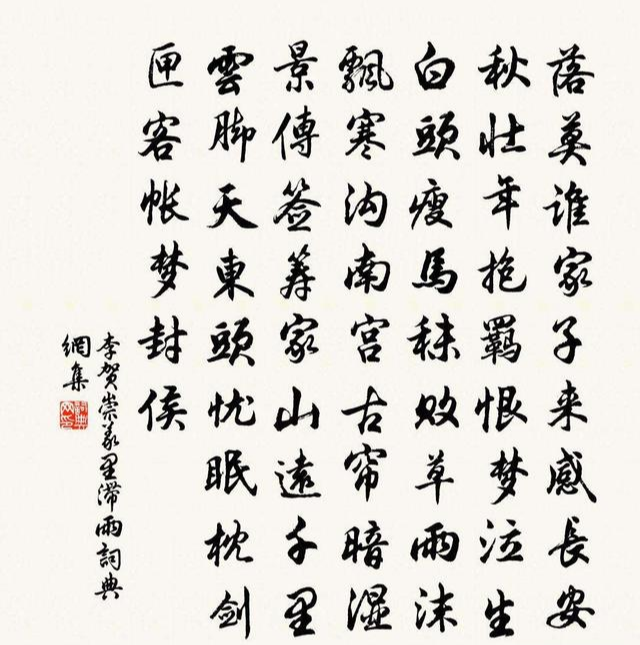 落莫谁家子来感長安
秋壮年抱羈恨梦泣生
白頭瘦馬秣败草雨沫
飄寒沟南宫古帘暗湿
景傳签筹家山遠千里
雲脚天東頭忧眠枕剑
匣客帐梦封侯
李贺崇義里滯雨詞典
網集